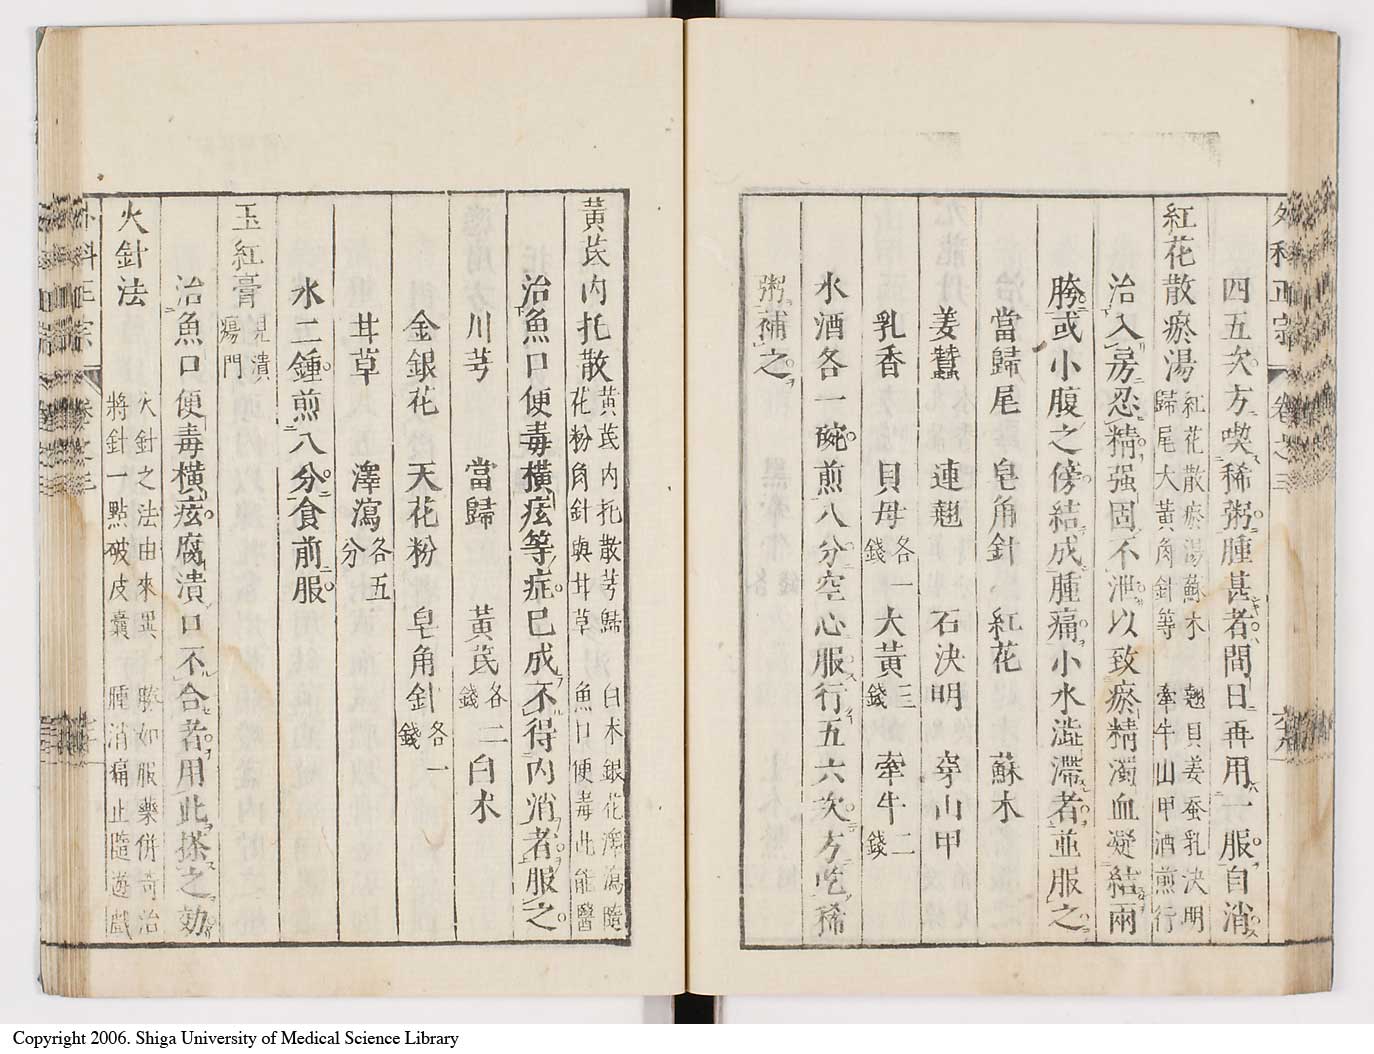 外科正宗 卷之三
四五次方喫稀粥腫甚者間日再用一服自消
紅花散瘀湯 紅花散瘀湯蘇木 翹貝姜蚕乳决明
歸尾大黃角針等 牽牛山甲酒煎行
治入房忍精强固不泄以致瘀精濁血凝結兩
胯或小腹之傍結成腫痛小水澁滯者並服之
當歸尾 皂角針 紅花 蘇木
姜蠶 連翹 石决明 穿山甲
乳香 貝母各一錢 大黃三錢 牽牛二錢
水酒各一碗煎八分空心服行五六次方吃稀
粥補之
黃芪内托散 黃芪内托散芎歸 白朮銀花澤瀉隨
花粉角針與甘草 魚口便毒此能醫
治魚口便毒横痃等症已成不得内消者服之
川芎 當歸 黃芪各二錢 白朮
金銀花 天花粉 皂角針各一錢
甘草 澤瀉各五分
水二鍾煎八分食前服
玉紅膏 見潰瘍門
治魚口便毒横痃腐潰口不合者用此搽之効
火針法 火針之法由來異 勝如服藥併奇治
將針一點破皮囊 腫消痛止隨遊戲
外科正宗 卷之三
Copyright 2006. Shiga University of Medical Science Library